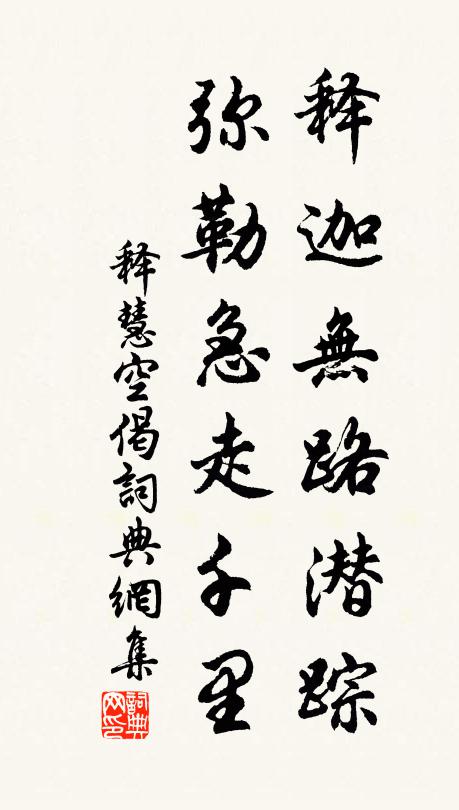 释迦無路潜踪
弥勒急走千里
释慧空偈詞典網集
詞典网印